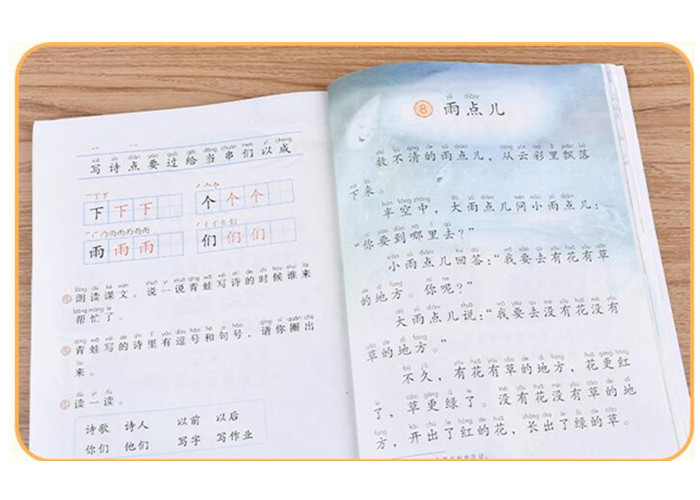 写诗点要过给当串们以成
下下下
个个个
雨雨雨
们们们
朗读课文。说一说青蛙写诗的时候谁来
帮忙了。
青蛙写的诗里有逗号和句号，请你圈出
来。
读一读。
诗歌 诗人 以前 以后
你们 他们 写字 写作业
8 雨点儿
数不清的雨点儿，从云彩里飘落
下来。
半空中，大雨点儿问小雨点儿：
“你要到哪里去？”
小雨点儿回答：“我要去有花有草
的地方。你呢？”
大雨点儿说：“我要去没有花没有
草的地方。”
不久，有花有草的地方，花更红
了，草更绿了。没有花没有草的地
方，开出了红的花，长出了绿的草。